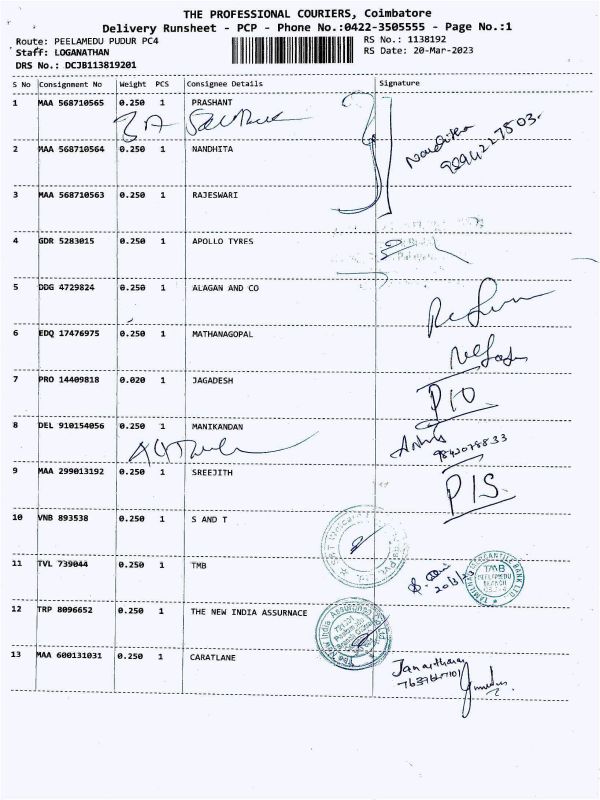 THE PROFESSIONAL COURIERS, Coimbatore
Delivery Runsheet - PCP - Phone No.:0422-3505555 - Page No.:1
Route: PEELAMEDU PUDUR PC4
RS No.: 1138192
Staff: LOGANATHAN
RS Date: 20-Mar-2023
DRS No.: DCJB113819201
S No Consignment No Weight PCS Consignee Details Signature
1 MAA 568710565 0.250 1 PRASHANT
2 MAA 568710564 0.250 1 NANDHITA
Nandhitha
3 MAA 568710563 0.250 1 RAJESWARI
4 GDR 5283015 0.250 1 APOLLO TYRES
5 DDG 4729824 0.250 1 ALAGAN AND CO
6 EDQ 17476975 0.250 1 MATHANAGOPAL
7 PRO 14409818 0.020 1 JAGADESH
8 DEL 910154056 0.250 1 MANIKANDAN
9 MAA 299013192 0.250 1 SREEJITH
10 VNB 893538 0.250 1 S AND T
11 TVL 739044 0.250 1 TMB
20/3/23
TAMILNAD MERCANTILE BANK LTD
TMB
PEELAMEDU
BRANCH
12 TRP 8096652 0.250 1 THE NEW INDIA ASSURNACE
The New India Assurance
13 MAA 600131031 0.250 1 CARATLANE